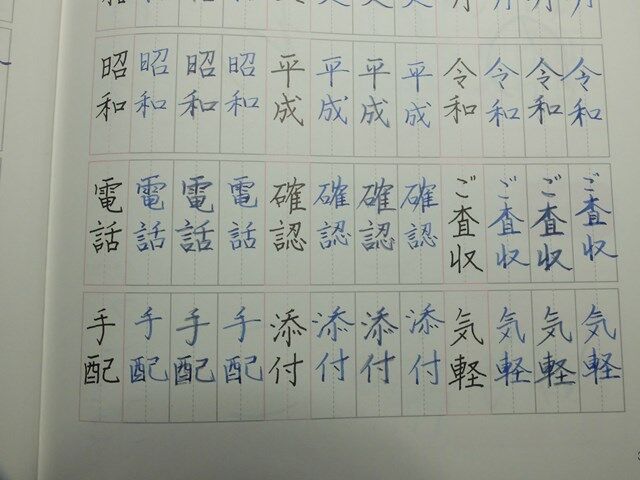 昭和 昭和 昭和 昭和 平成 平成 平成 平成 令和 令和 令和 令和
電話 電話 電話 電話 確認 確認 確認 確認 ご査収 ご査収 ご査収 ご査収
手配 手配 手配 手配 添付 添付 添付 添付 気軽 気軽 気軽 気軽